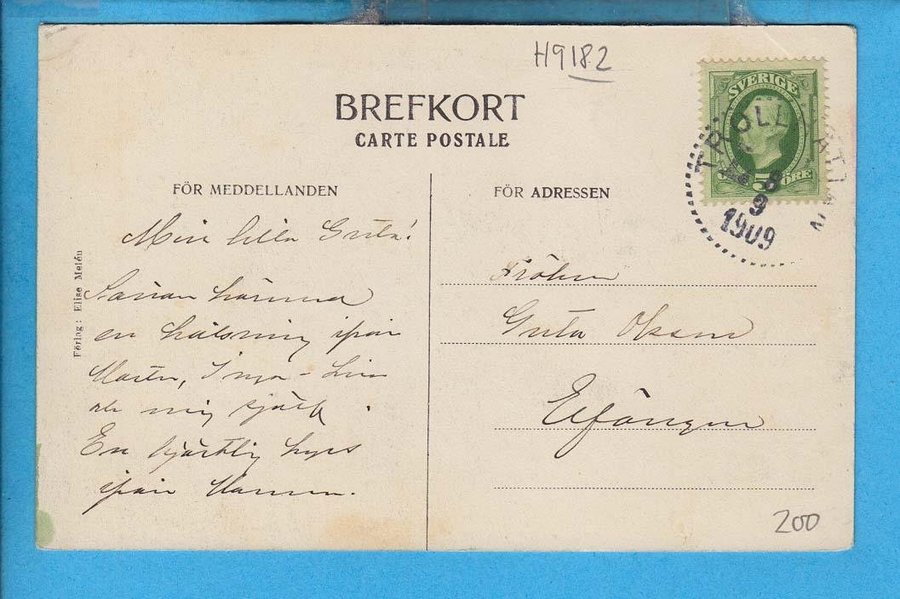 H9182
BREFKORT
CARTE POSTALE
SVERIGE
5 ÖRE
TROLLHÄTTAN
8
9
1909
FÖR MEDDELLANDEN
FÖR ADRESSEN
Förlag: Elise Melén
Min lilla Greta!
Sänder härmed
en hälsning ifrån
Märta, Inga-Lisa
och mig själf.
En hjärtlig kyss
ifrån Mamma.
Fröken
Greta Olsson
200